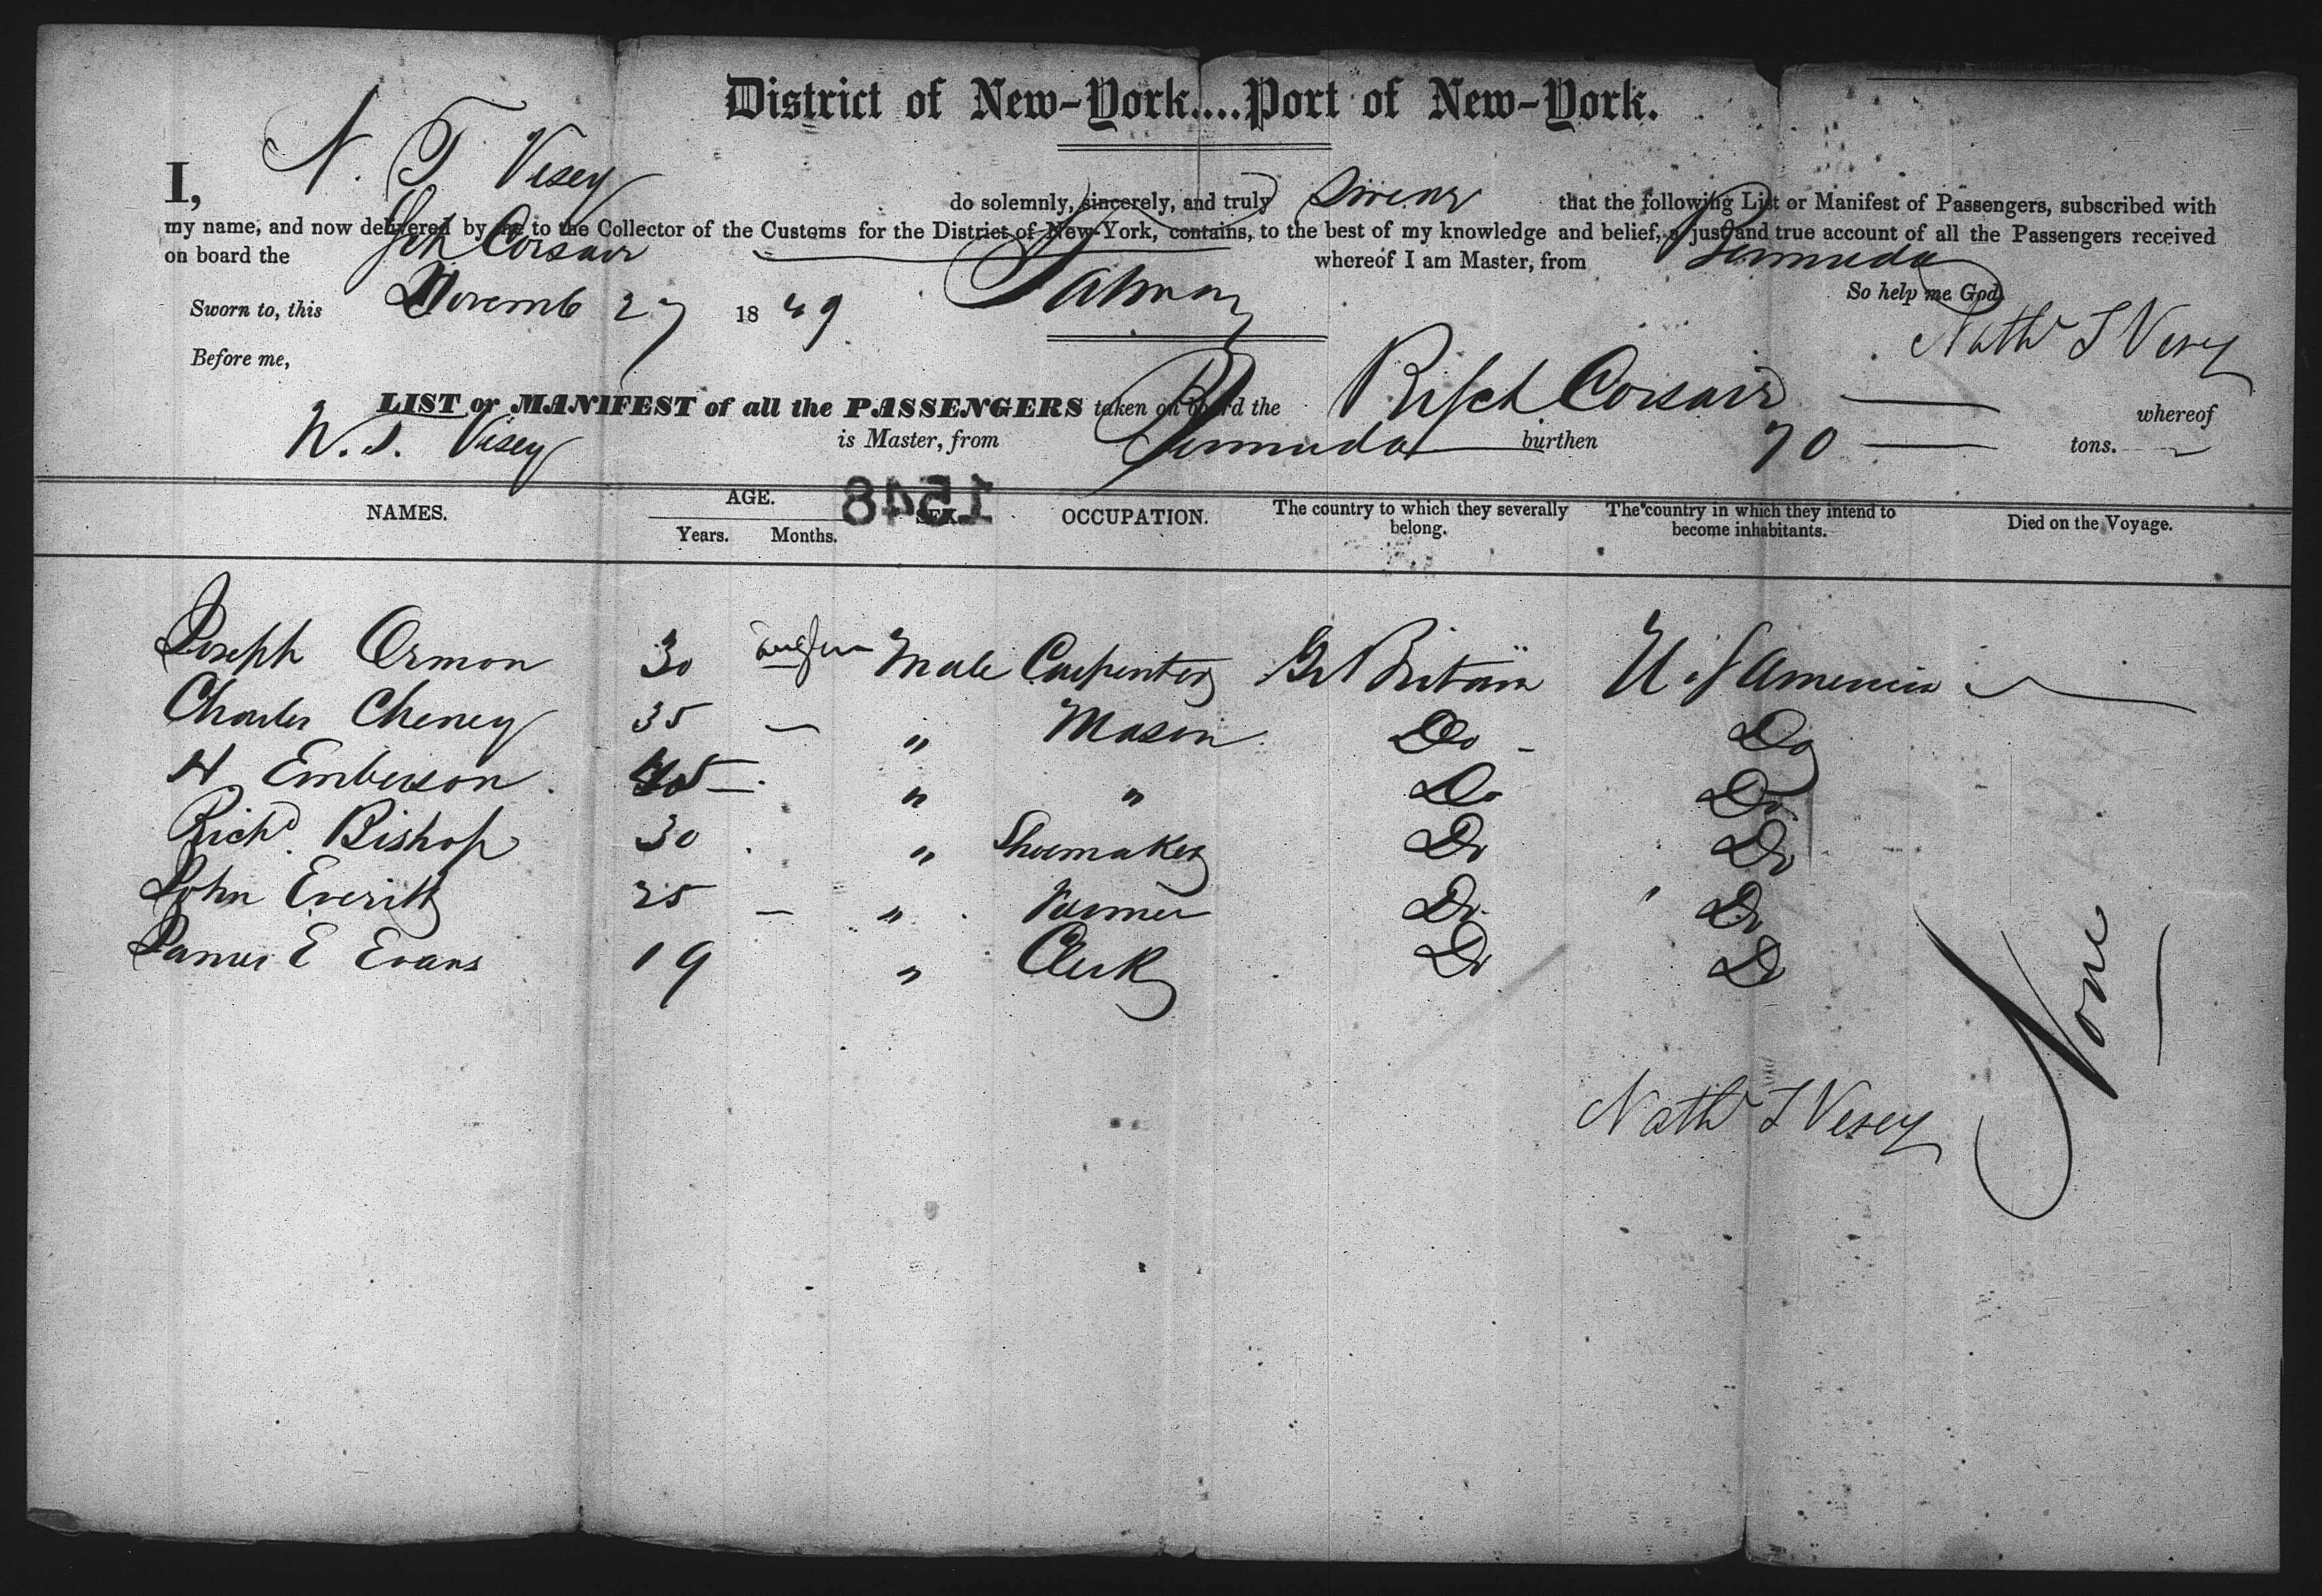 District of New-York....Port of New-York.
I, N. T Vesey do solemnly, sincerely, and truly swear that the following List or Manifest of Passengers, subscribed with
my name, and now delivered by me to the Collector of the Customs for the District of New-York, contains, to the best of my knowledge and belief, a just and true account of all the Passengers received
on board the Sch Corsair whereof I am Master, from Bermuda
Sworn to, this Novemb 27 1849 So help me God.
Before me, Nathl T Vesey
LIST or MANIFEST of all the PASSENGERS taken on board the Br Sch Corsair whereof
N. T. Vesey is Master, from Bermuda burthen 70 tons.
1548
NAMES. AGE. SEX. OCCUPATION. The country to which they severally belong. The country in which they intend to become inhabitants. Died on the Voyage.
Years. Months.
Joseph Ormon 30 Male Carpenter Gt Britain U. S America
Charles Cheney 35 — " Mason Do - Do
H Emberson 45 — " " Do Do
Richd. Bishop 30 " Shoemaker Do Do
John Everitt 25 — " Farmer Do " Do
James E Evans 19 " Clerk Do Do
None
Nathl T Vesey